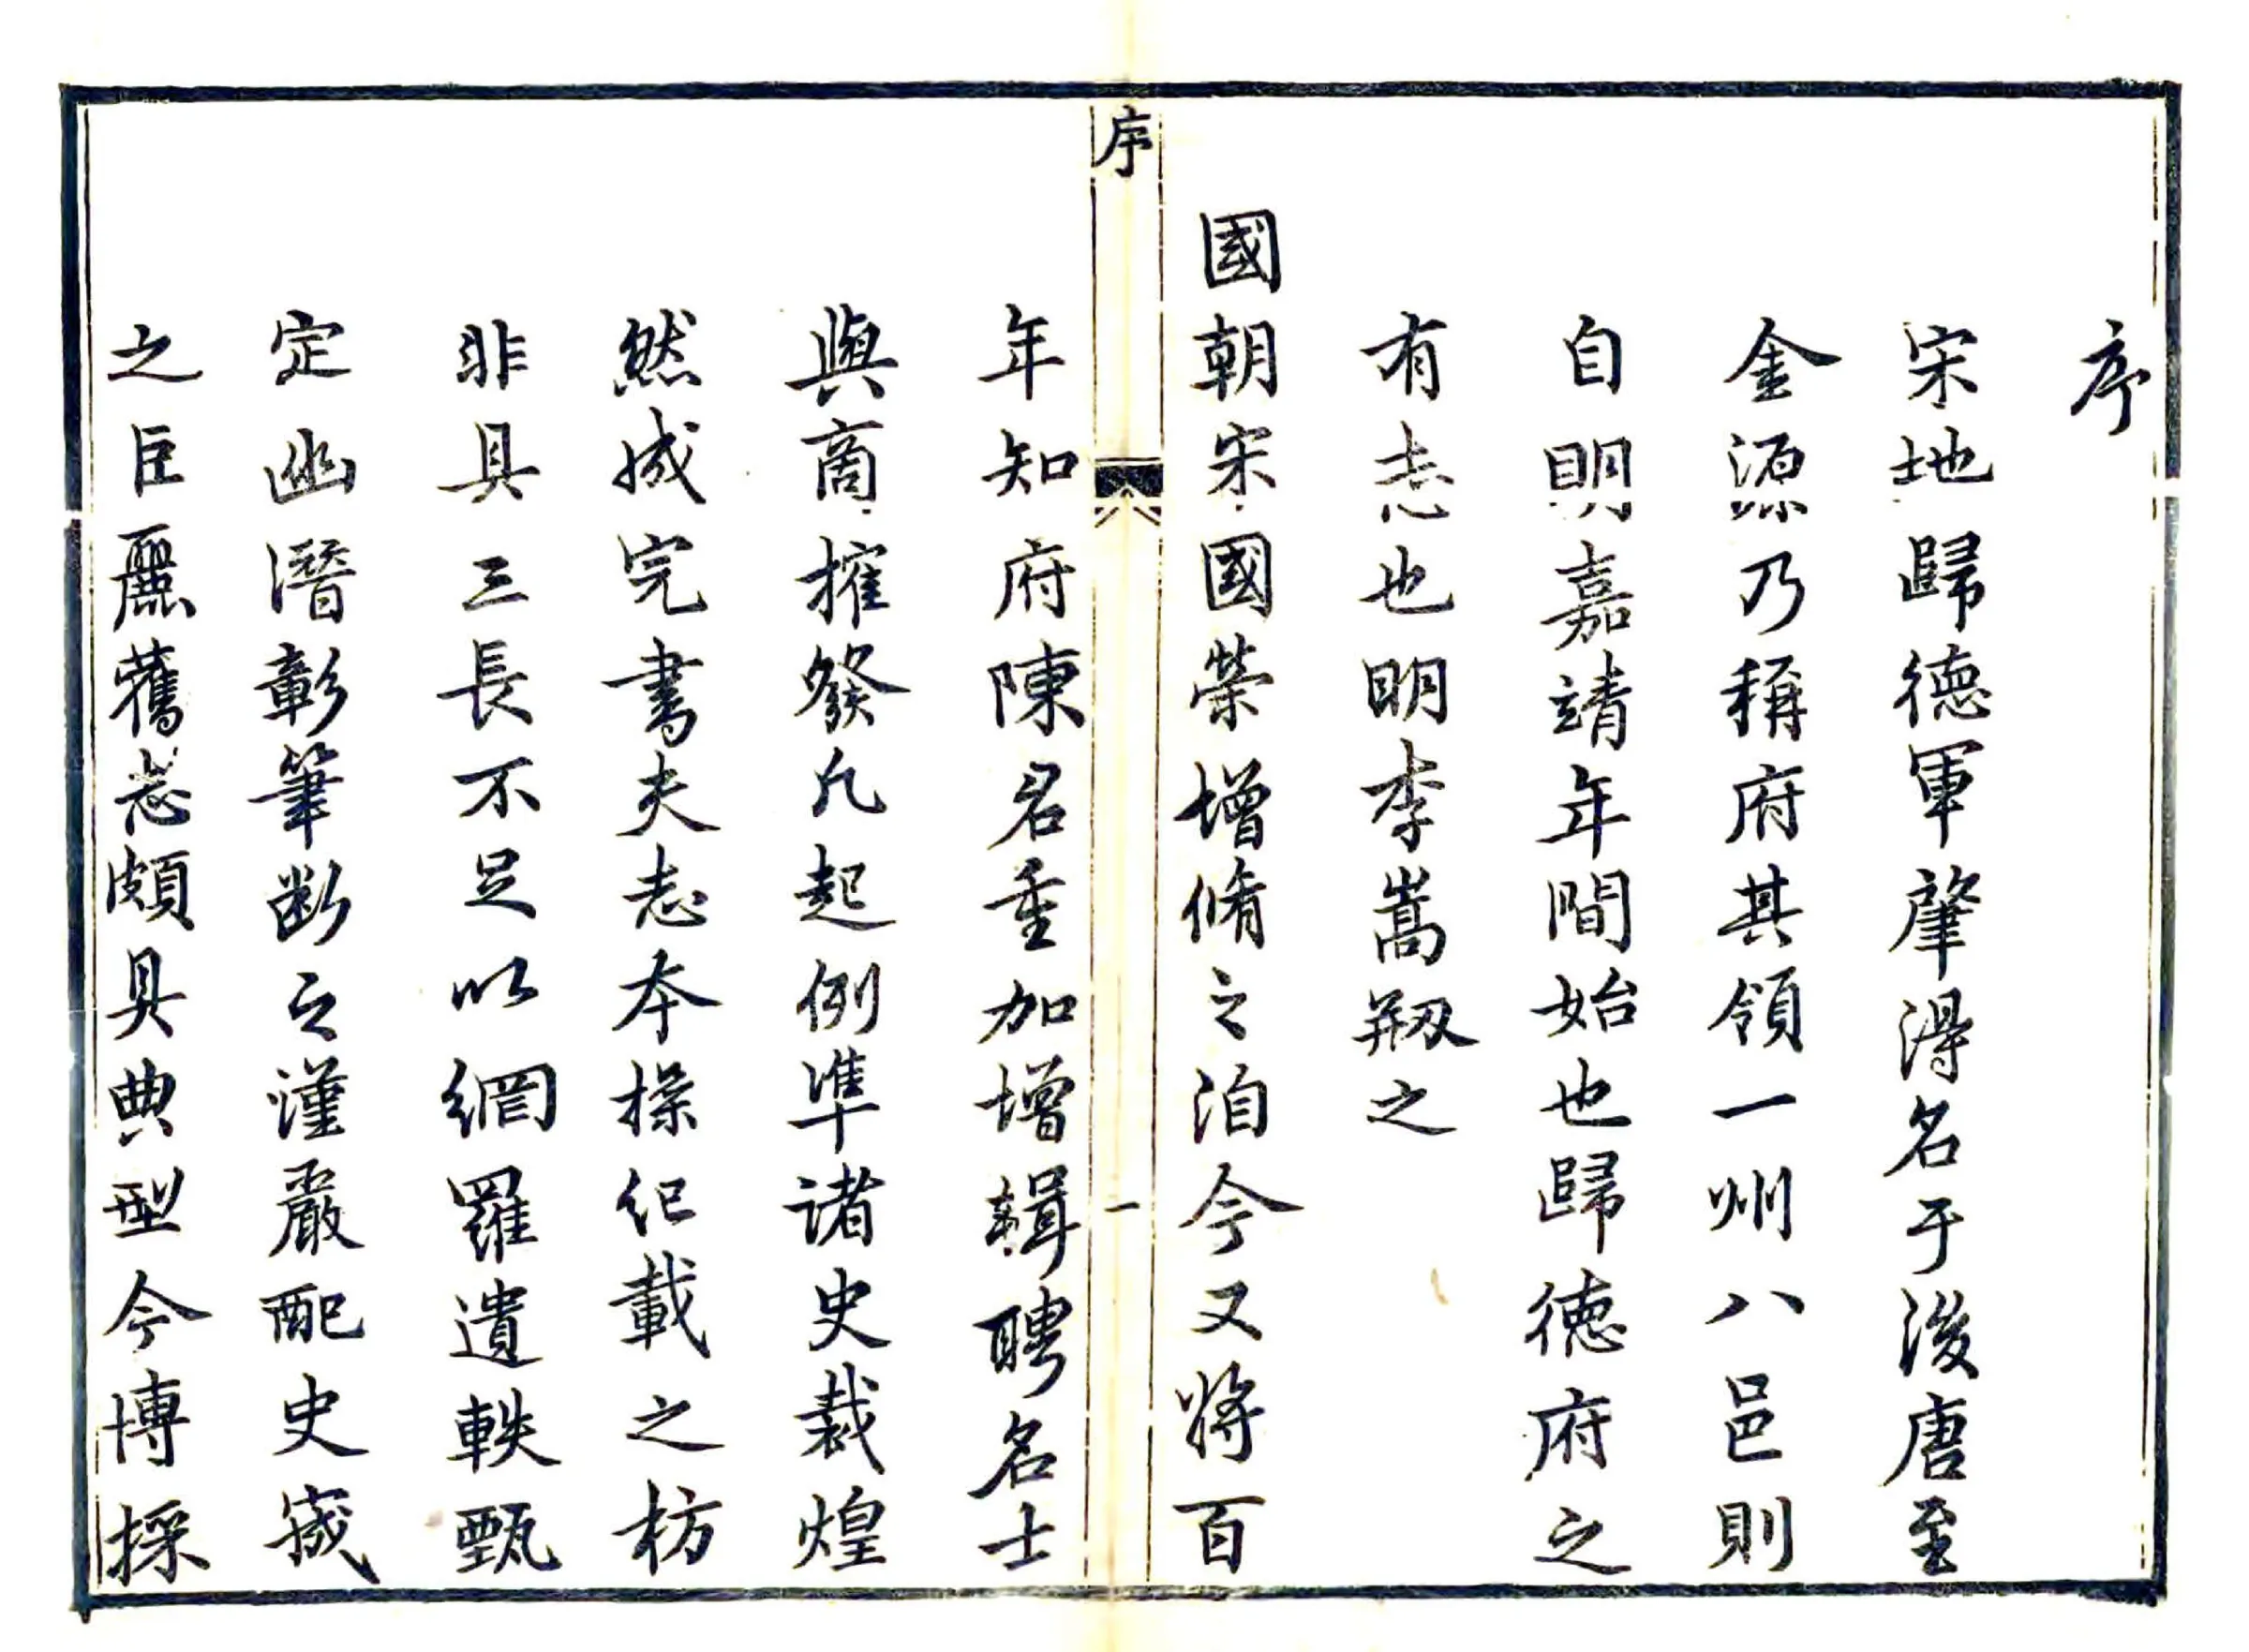 序
宋地歸德軍肇得名于後唐至
金源乃稱府其領一州八邑則
自明嘉靖年間始也歸德府之
有志也明李嵩剏之
國朝宋國榮增脩之洎今又將百
序
一
年知府陳君重加增輯聘名士
與商搉發凡起例準諸史裁煌
然成完書夫志本操紀載之枋
非具三長不足以網羅遺軼甄
定幽潛彰筆斷之謹嚴配史宬
之巨麗舊志頗具典型今博採